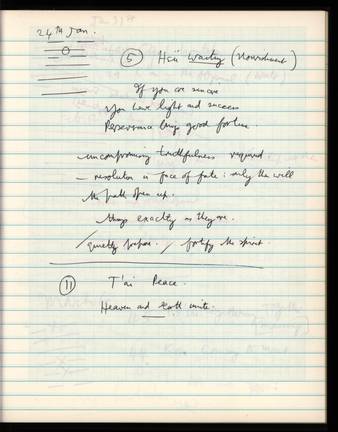 24TH Jan.
⑤ Hsü Waiting (Nourishment)
If you are sincere
You have light and success
Perseverance brings good fortune
- uncompromising truthfulness required
- resolution in face of fate: only then will
the path open up.
things exactly as they are.
/quietly prepare. / fortify the spirit.
⑪ T'ai Peace.
Heaven and Earth unite.